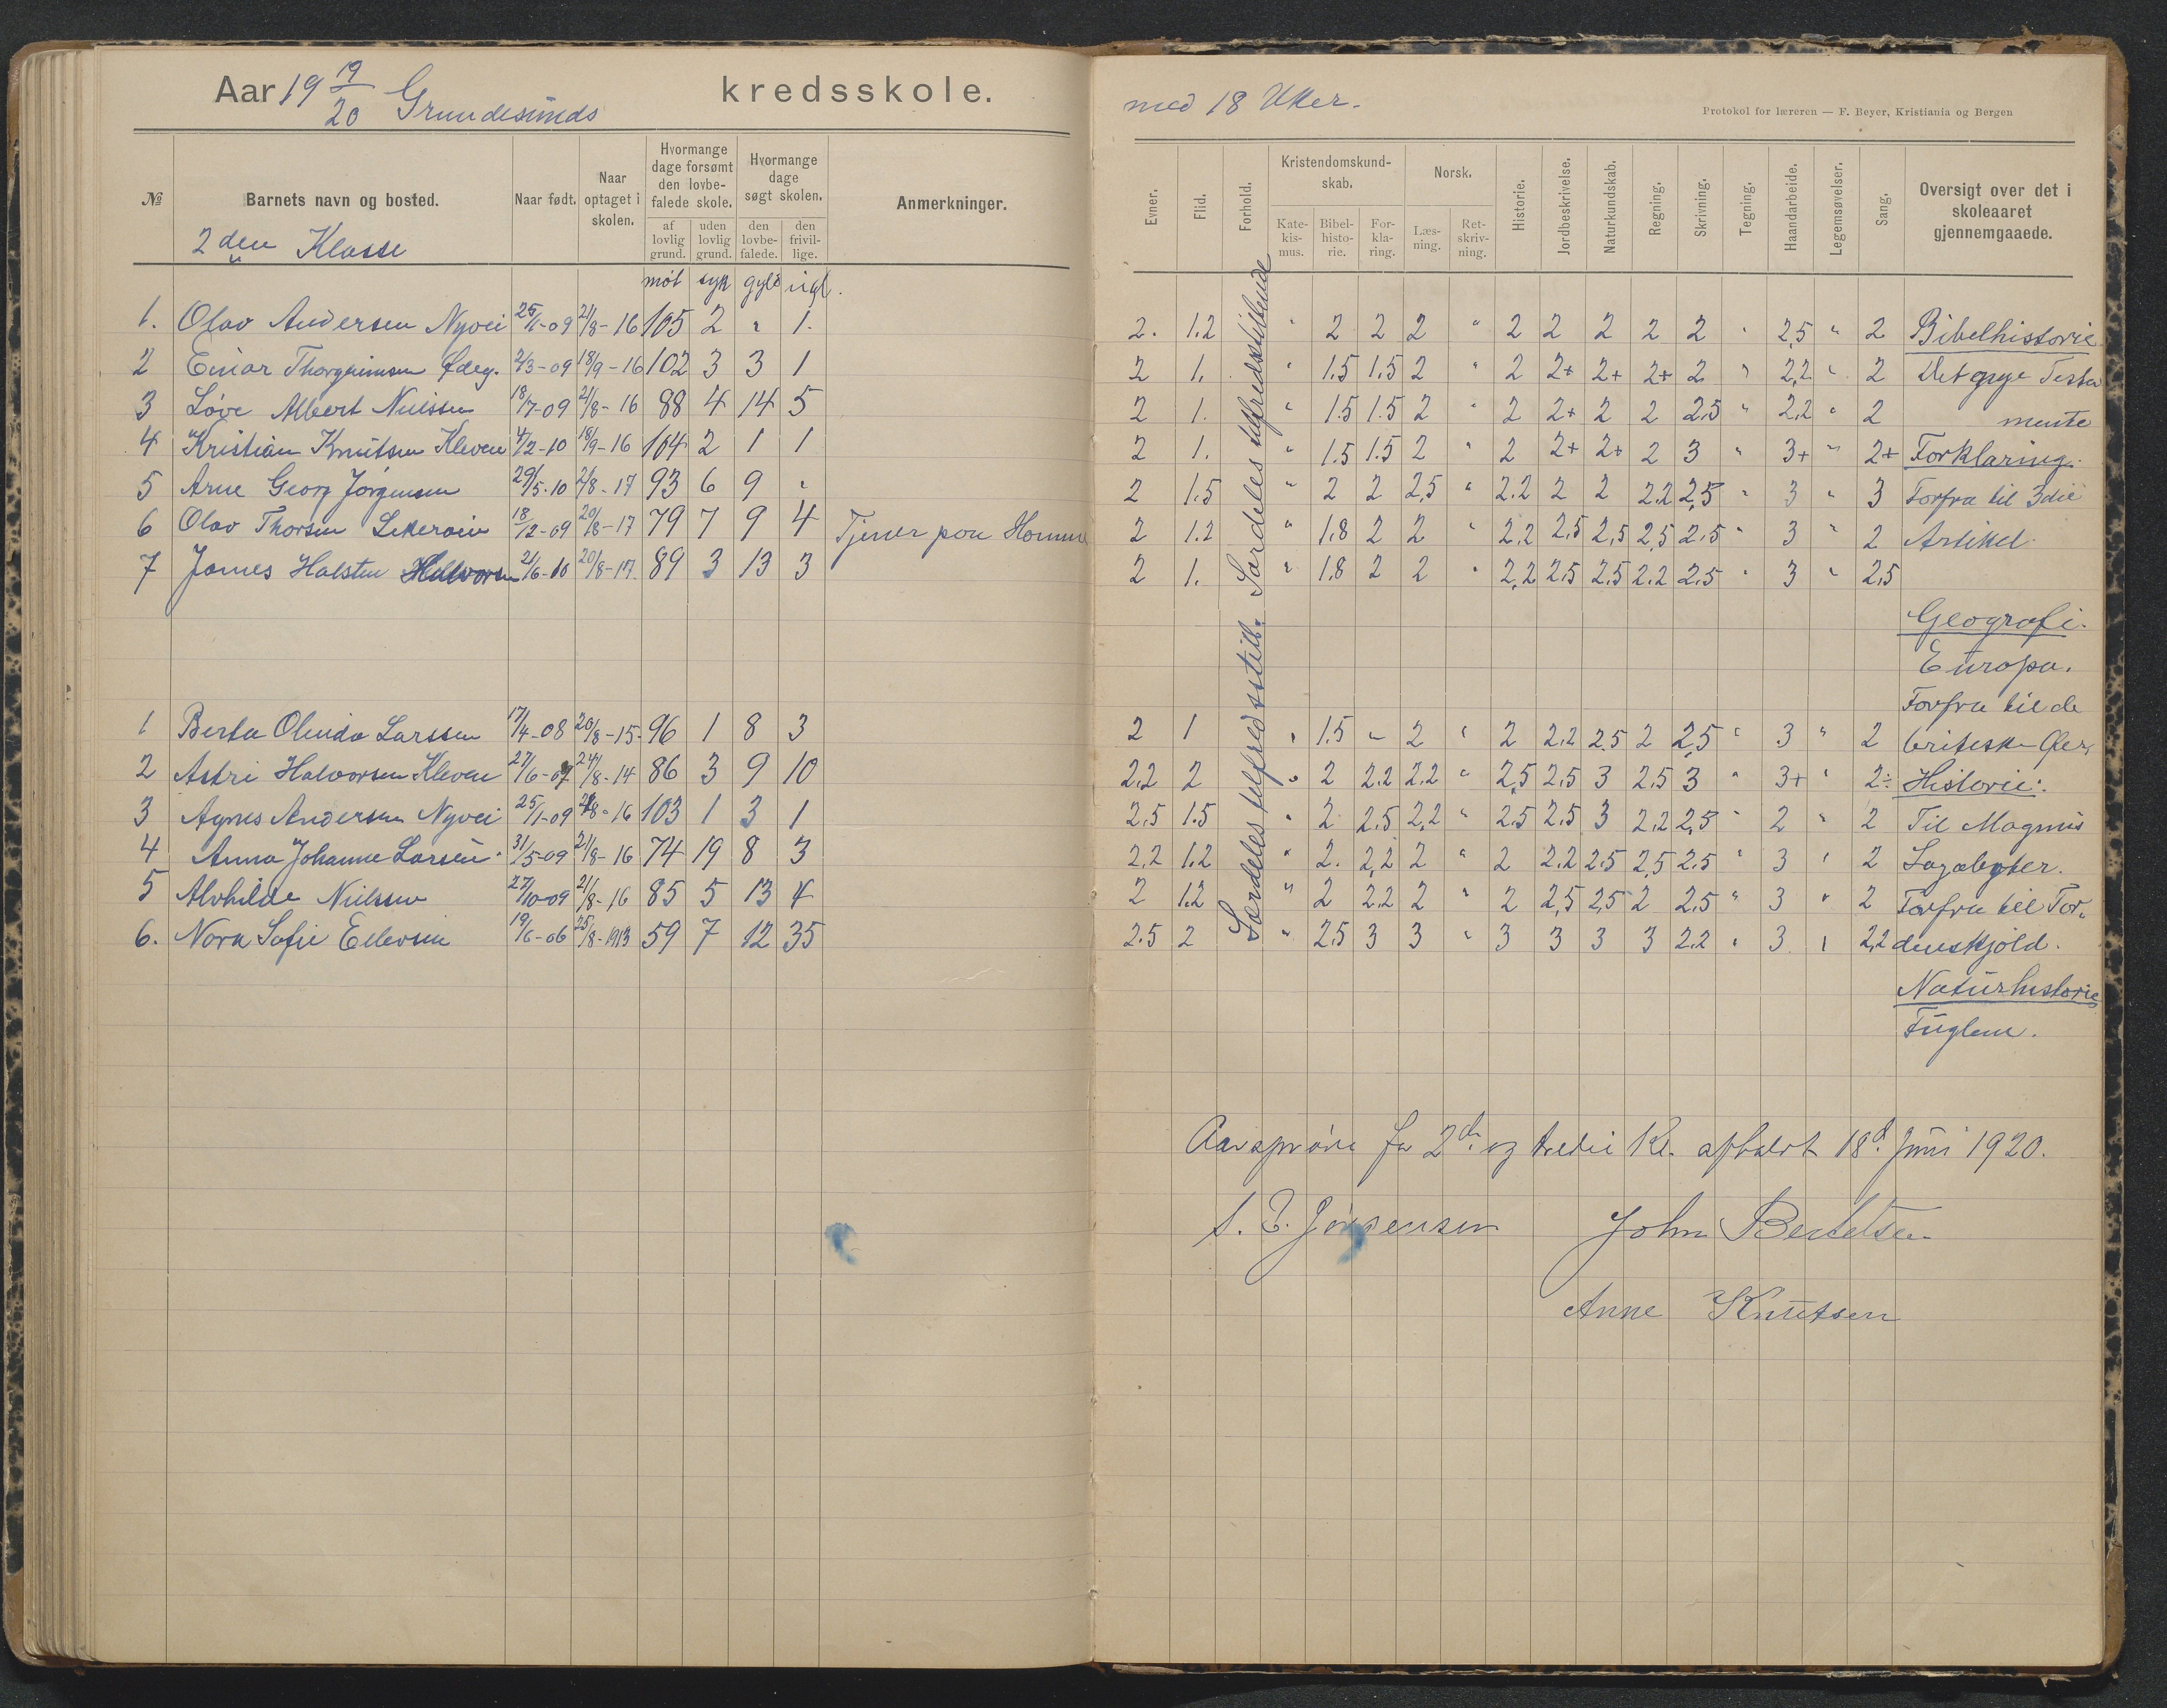 Aar 19 19/20 Grundesunds kredsskole.
№ Barnets navn og bosted. Naar født. Naar optaget i skolen. Hvormange dage forsømt den lovbefalede skole. af lovlig grund. uden lovlig grund. Hvormange dage søgt skolen. den lovbefalede. den frivillige. Anmerkninger.
2den Klasse
møt syk gyld ugl.
1. Olav Andersen Nyvei 25/1-09 21/8-16 105 2 " 1.
2 Einar Thorgrimsen Ødeg. 2/3-09 18/9-16 102 3 3 1
3 Løve Albert Nielssen 18/7-09 21/8-16 88 4 14 5
4 Kristian Knutsen Kleven 4/2-10 18/9-16 104 2 1 1
5 Arne Georg Jörgensen 29/5-10 2/8-17 93 6 9 "
6 Olav Thorsen 18/12-09 20/8-17 79 7 9 4 Tjener paa
7 James Halsten Halvorsen 2/6-10 20/8-17. 89 3 13 3
1 Berta Olinda Larssen 17/4-08 20/8-15- 96 1 8 3
2 Astri Halvorsen Kleven 27/6-07 24/8-14 86 3 9 10
3 Agnes Andersen Nyvei 25/1-09 21/8-16 103 1 3 1
4 Anna Johanne Larsen 31/5-09 21/8-16 74 19 8 3
5 Alvhilde Nielssen 27/10-09 21/8-16 85 5 13 4
6. Nora Sofie Ellevsen 19/6-06 25/8-1913 59 7 12 35
med 18 Uker.
Protokol for læreren — F. Beyer, Kristiania og Bergen
Evner. Flid. Forhold. Kristendomskundskab. Katekismus. Bibelhistorie. Forklaring. Norsk. Læsning. Retskrivning. Historie. Jordbeskrivelse. Naturkundskab. Regning. Skrivning. Tegning. Haandarbeide. Legemsøvelser. Sang. Oversigt over det i skoleaaret gjennemgaaede.
Særdeles tilfredsstillende
2. 1.2 " 2 2 2 " 2 2 2 2 2 " 2,5 " 2 Bibelhistorie
2 1. " 1.5 1.5 2 " 2 2+ 2+ 2+ 2 " 2,2 " 2 Det nye Testa
2 1. " 1.5 1.5 2 " 2 2+ 2 2 2.5 " 2,2 " 2 mente
2 1. " 1.5 1.5 2 " 2 2+ 2+ 2 3 " 3+ " 2+ Forklaring.
2 1.5 " 2 2 2,5 " 2.2 2 2 2.2 2,5 " 3 " 3 Forfra til 3die
2 1.2 " 1.8 2 2 " 2,2 2,5 2,5 2,5 2.5 " 3 " 2 Artikel.
2 1. " 1.8 2 2 " 2,2 2.5 2.5 2.2 2.5 " 3 " 2,5
Geografi.
Europa.
Forfra til de
Særdeles tilfredsstill.
2 1 " 1.5 " 2 " 2 2,2 2.5 2 2,5 " 3 " 2 britiske Øer.
2,2 2 " 2 2.2 2.2 " 2,5 2.5 3 2,5 3 " 3+ " 2÷ Historie:
2,5 1.5 " 2 2.5 2,2 " 2.5 2.5 3 2,2 2,5 " 2 " 2 Til Magnus
2,2 1.2 " 2. 2,2 2 " 2 2.2 2.5 2,5 2.5 " 3 " 2 Lagabøter.
2 1.2 " 2 2.2 2 " 2 2,5 2,5 2 2.5 " 3 " 2 Forfra til Tor-
2.5 2 " 2.5 3 3 " 3 3 3 3 2.2 " 3 " 2,2 denskjold.
Naturhistorie
Fuglene.
Aarsprøve for 2den og tredie Kl. afholdt 18d. Juni 1920.
S. T. Jörgensen John Bertelsen
Anne Knutsen